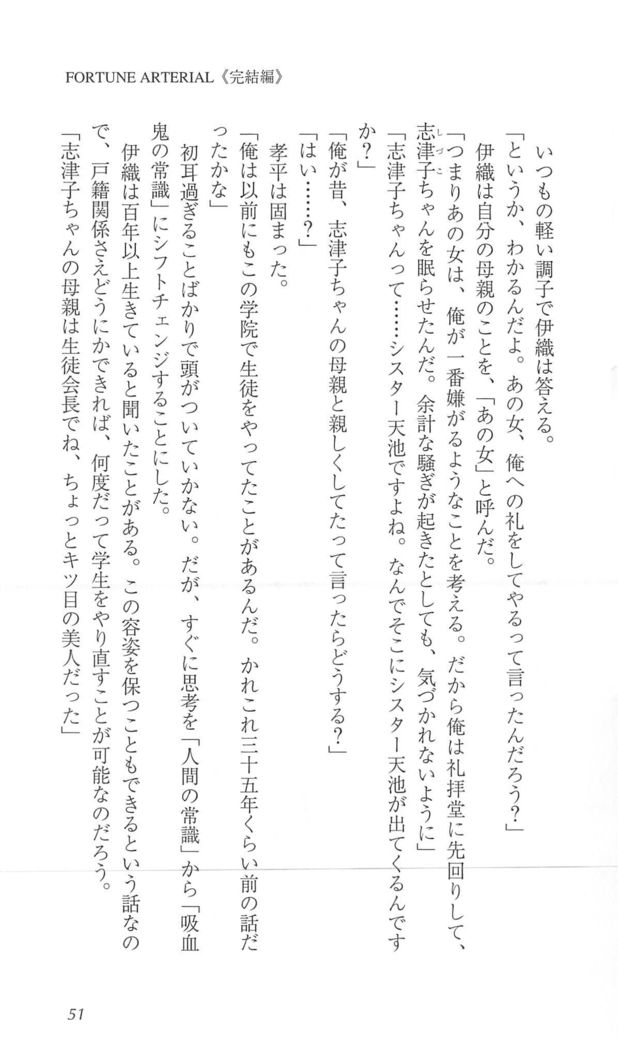 FORTUNE ARTERIAL《完結編》
いつもの軽い調子で伊織は答える。
「というか、わかるんだよ。あの女、俺への礼をしてやるって言ったんだろう？」
伊織は自分の母親のことを、「あの女」と呼んだ。
「つまりあの女は、俺が一番嫌がるようなことを考える。だから俺は礼拝堂に先回りして、
志津子ちゃんを眠らせたんだ。余計な騒ぎが起きたとしても、気づかれないように」
しづこ
「志津子ちゃんって……シスター天池ですよね。なんでそこにシスター天池が出てくるんです
か？」
「俺が昔、志津子ちゃんの母親と親しくしてたって言ったらどうする？」
「はい……？」
孝平は固まった。
「俺は以前にもこの学院で生徒をやってたことがあるんだ。かれこれ三十五年くらい前の話だ
ったかな」
初耳過ぎることばかりで頭がついていかない。だが、すぐに思考を「人間の常識」から「吸血
鬼の常識」にシフトチェンジすることにした。
伊織は百年以上生きていると聞いたことがある。この容姿を保つこともできるという話なの
で、戸籍関係さえどうにかできれば、何度だって学生をやり直すことが可能なのだろう。
「志津子ちゃんの母親は生徒会長でね、ちょっとキツ目の美人だった」
51